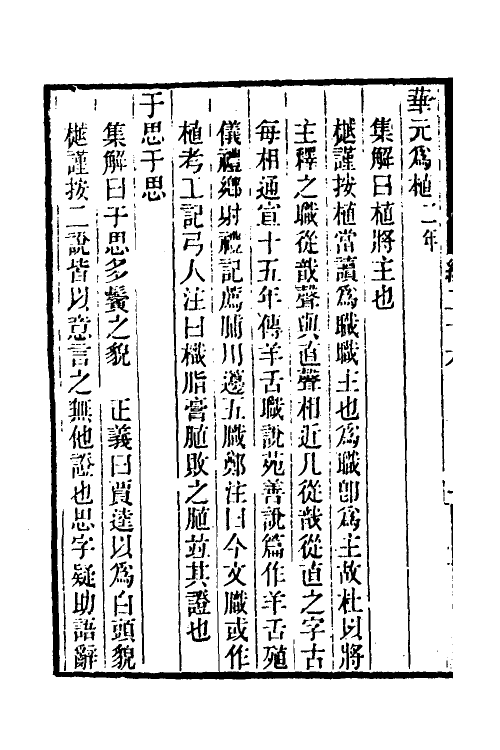 華元爲植二年
集解曰植將主也
樾謹按植當讀爲職職主也爲職卽爲主故杜以將
主釋之職從戠聲與直聲相近凡從戠從直之字古
每相通宣十五年傳羊舌職說苑善說篇作羊舌殖
儀禮鄉射禮記薦脯用籩五職鄭注曰今文職或作
植考工記弓人注曰樴脂膏䐈敗之䐈竝其證也
于思于思
集解曰于思多鬚之貌 正義曰賈逵以爲白頭貌
樾謹按二說皆以意言之無他證也思字疑助語辭